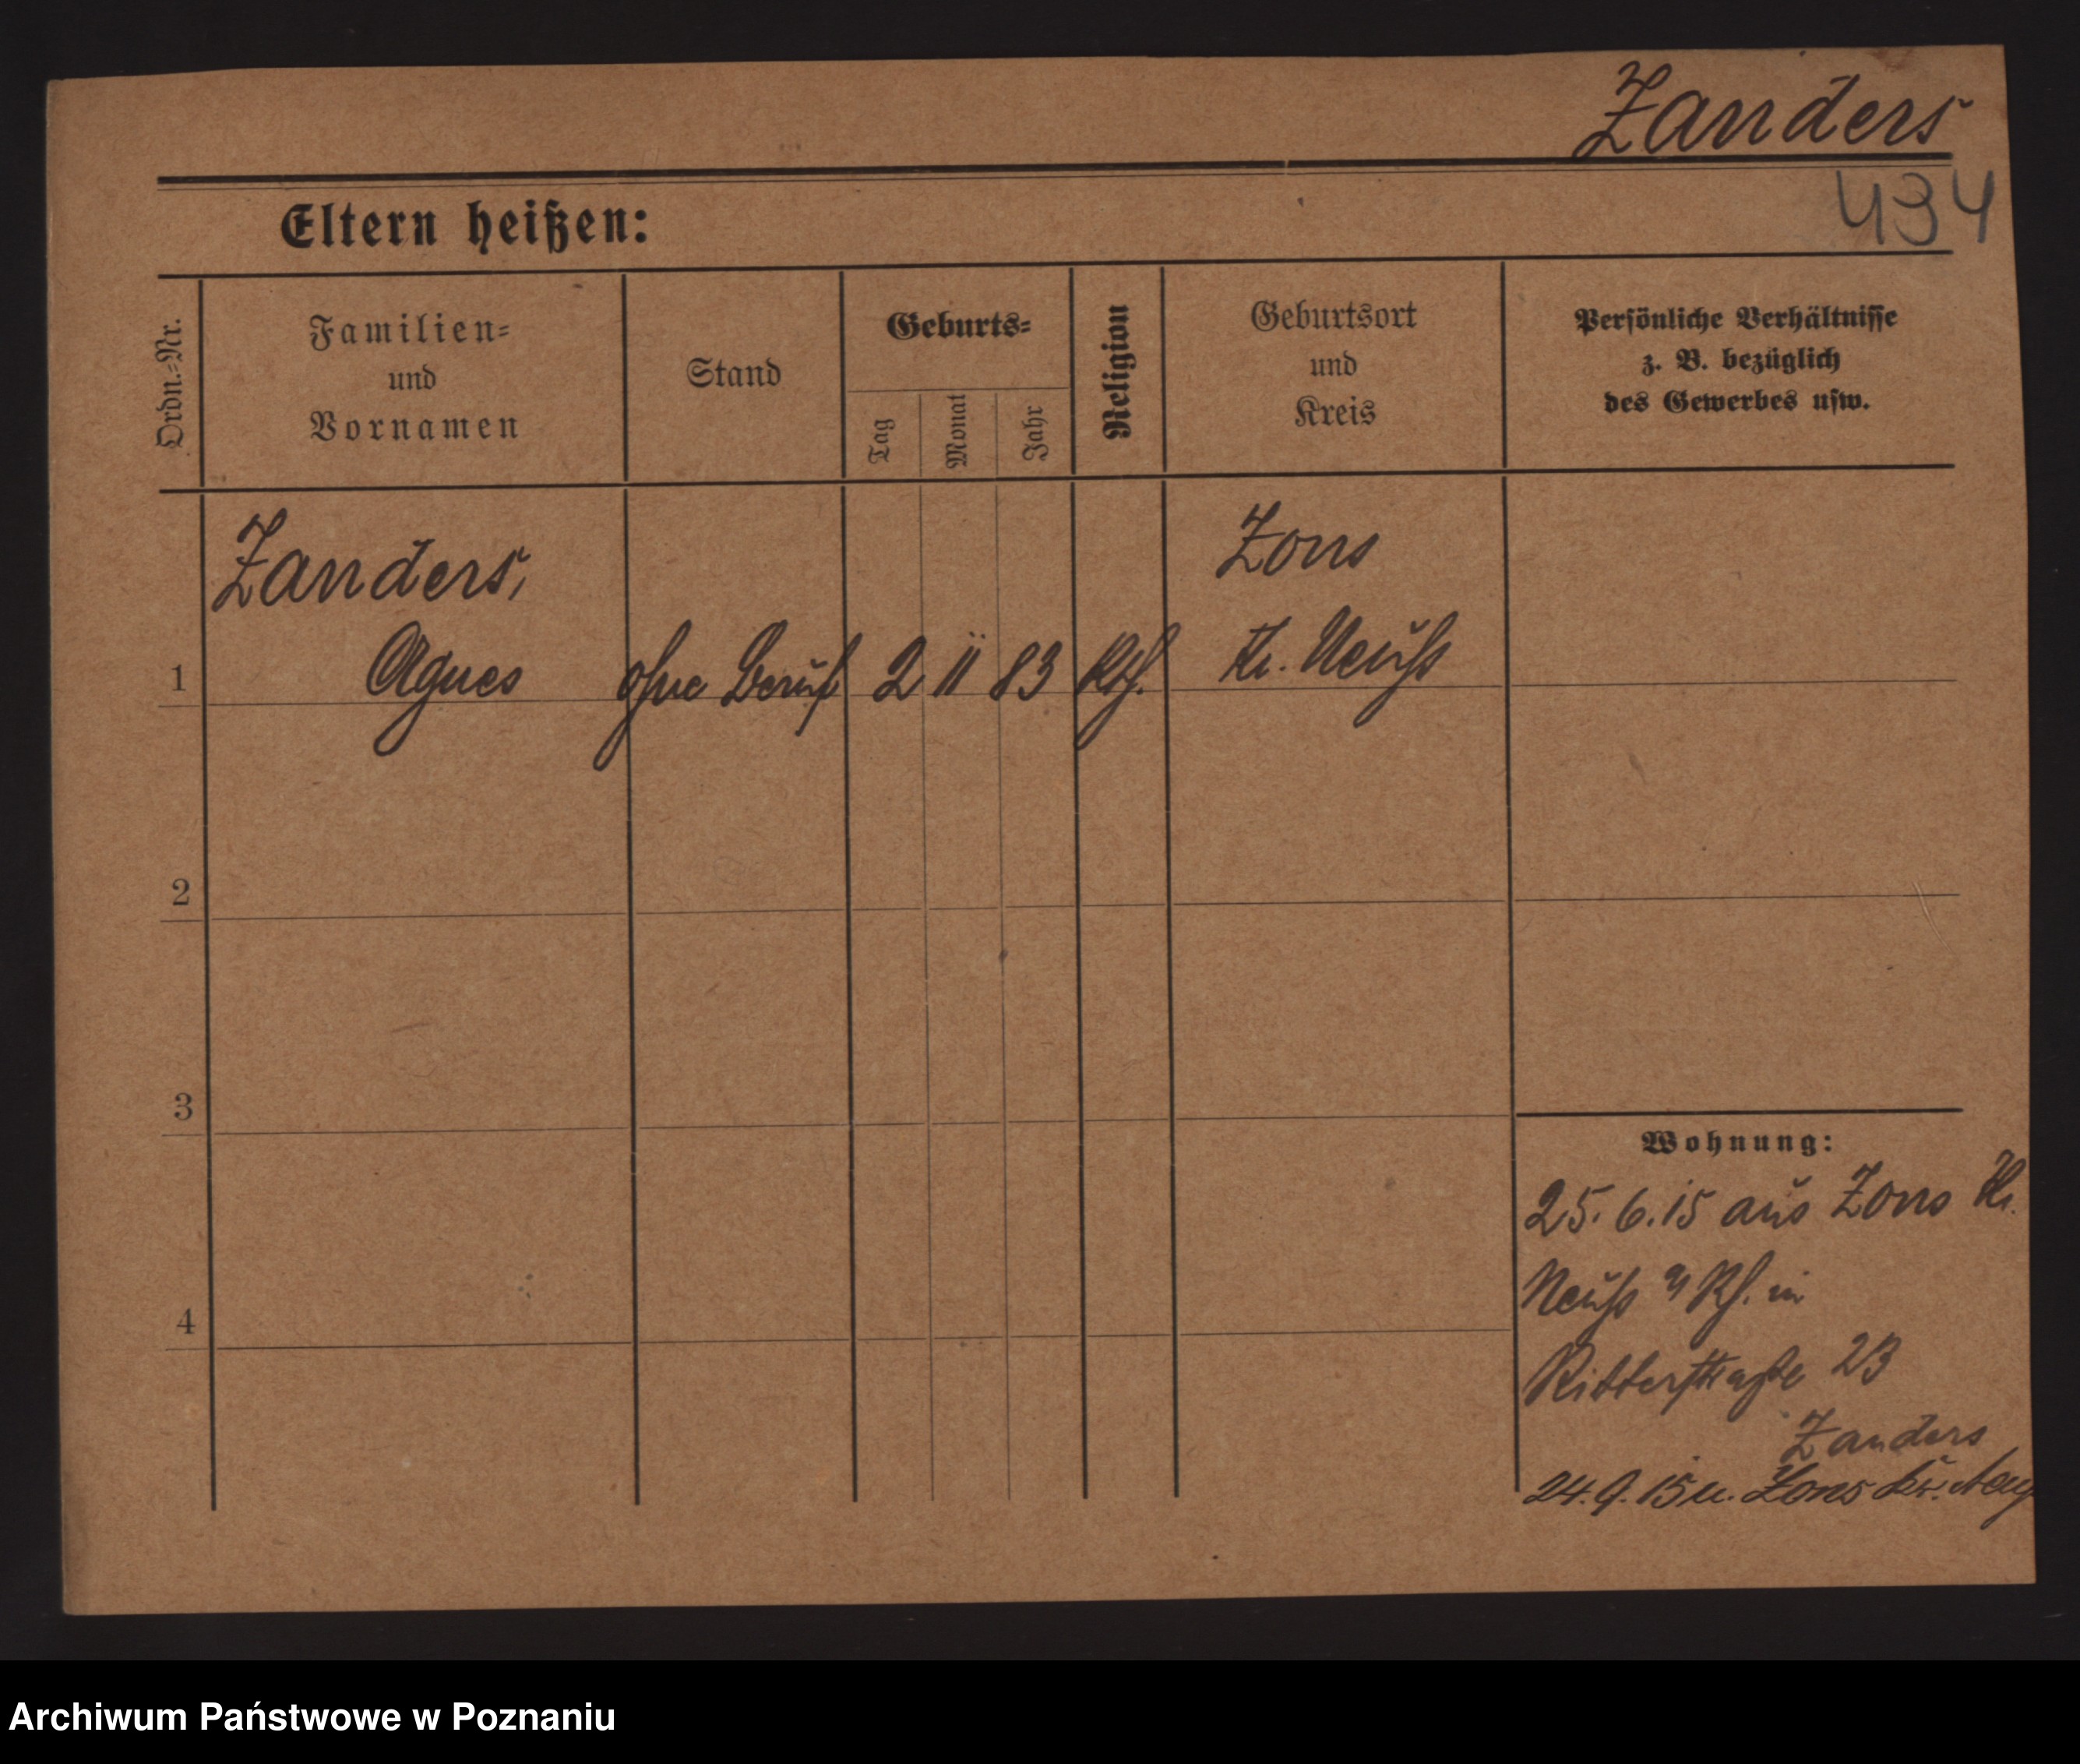 Zanders
434
Eltern heißen:
Ordn.-Nr.
Familien-
und
Vornamen
Stand
Geburts-
Tag
Monat
Jahr
Religion
Geburtsort
und
Kreis
Persönliche Verhältnisse
z. B. bezüglich
des Gewerbes usw.
Zanders,
Zons
1 Agnes ohne Beruf 2 11 83 kth. Kr. Neuß
2
3
4
Wohnung:
25. 6. 15 aus Zons Kr.
Neuß Rh. in
Ritterstraße 23
Zanders
24. 9. 15 n. Zons Kr.
Archiwum Państwowe w Poznaniu